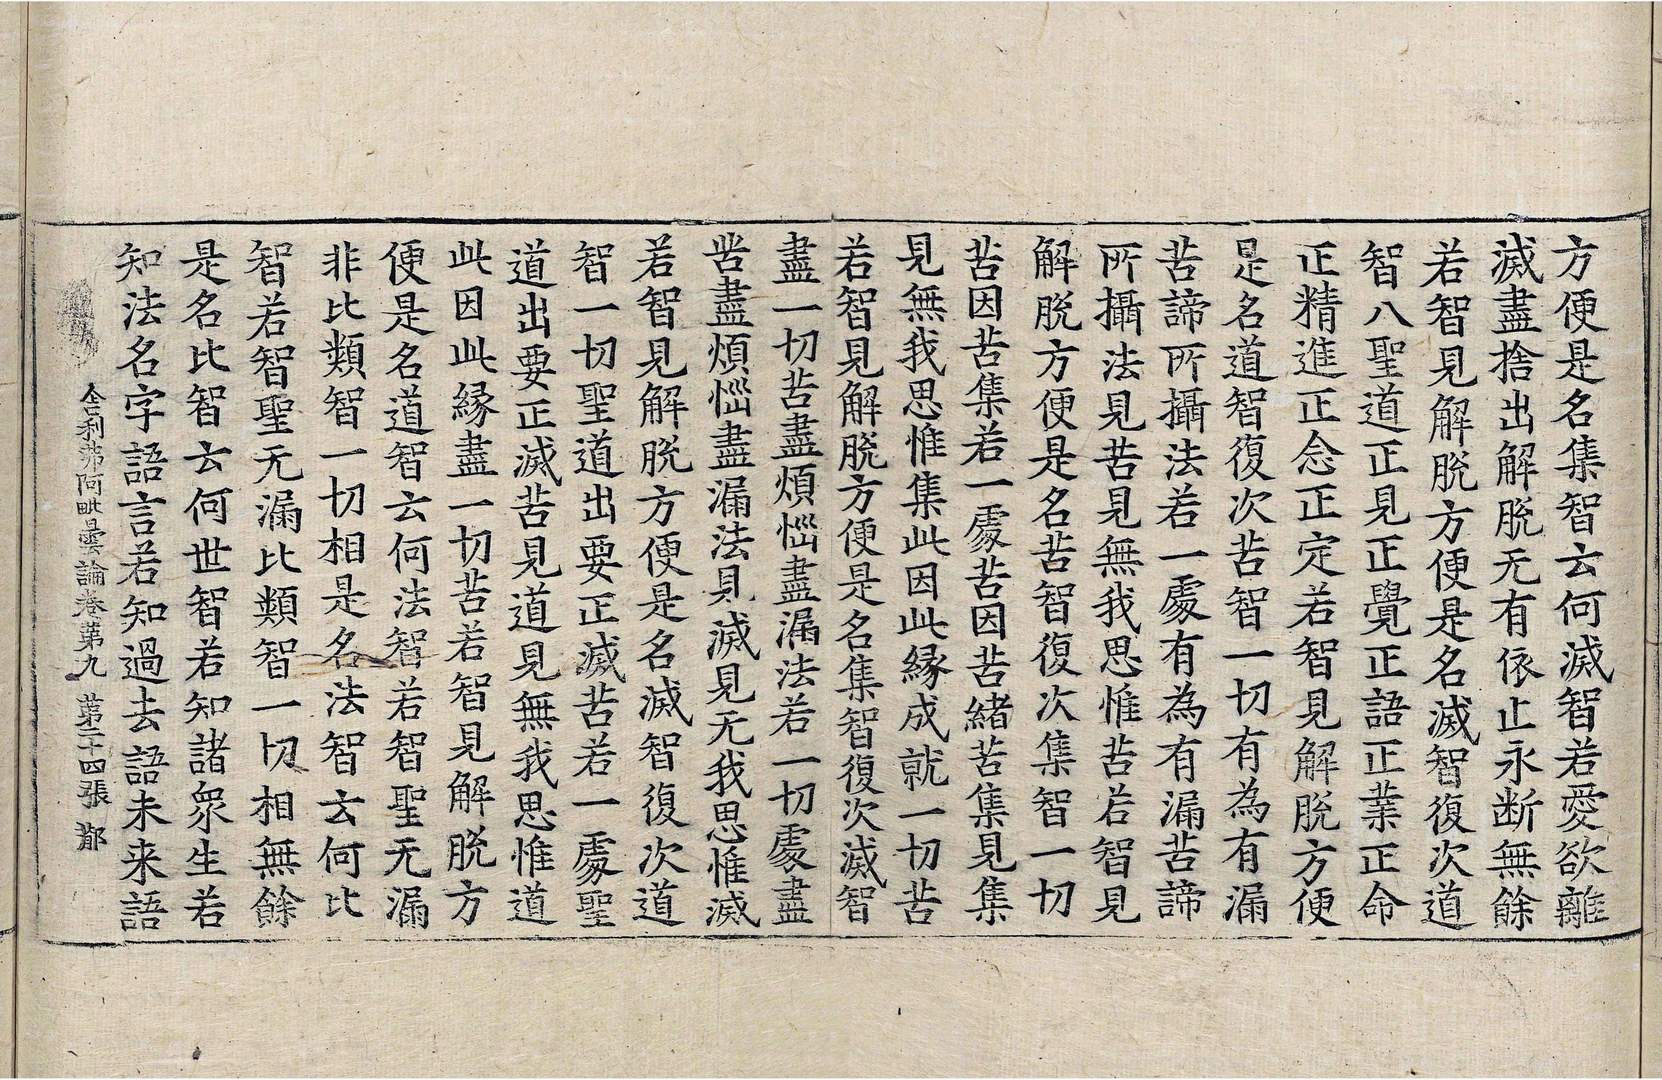 方便是名集智云何滅智若愛欲離
滅盡捨出解脫无有依止永断無餘
若智見解脫方便是名滅智復次道
智八聖道正見正覺正語正業正命
正精進正念正定若智見解脫方便
是名道智復次苦智一切有為有漏
苦諦所攝法若一處有為有漏苦諦
所攝法見苦見無我思惟苦若智見
解脫方便是名苦智復次集智一切
苦因苦集若一處苦因苦緒苦集見集
見無我思惟集此因此縁成就一切苦
若智見解脫方便是名集智復次滅智
盡一切苦盡煩惱盡漏法若一切處盡
苦盡煩惱盡漏法見滅見无我思惟滅
若智見解脫方便是名滅智復次道
智一切聖道出要正滅苦若一處聖
道出要正滅苦見道見無我思惟道
此因此縁盡一切苦若智見解脫方
便是名道智云何法智若智聖无漏
非比類智一切相是名法智云何比
智若智聖无漏比類智一切相無餘
是名比智云何世智若知諸衆生若
知法名字語言若知過去語未来語
舍利弗阿毗曇論卷第九 第二十四張 鄁